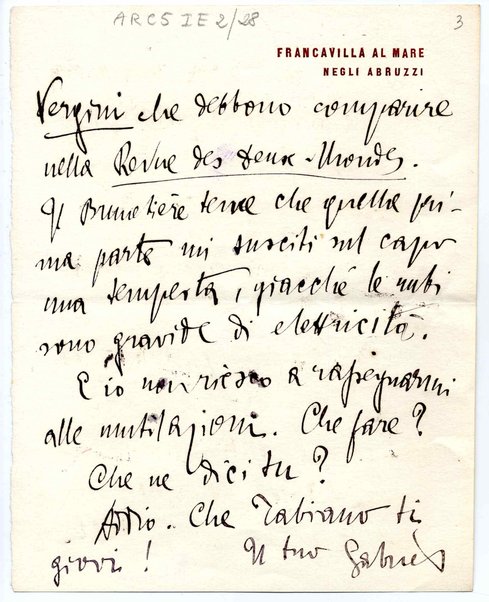 ARC5 IE 2/28
3
FRANCAVILLA AL MARE
NEGLI ABRUZZI
Vergini che debbono comparire
nella Revue des deux-Mondes.
Il Brunetière teme che quella pri-
ma parte mi susciti sul capo
una tempesta, giacché le nubi
sono gravide di elettricità.
E io non riesco a rassegnarmi
alle mutilazioni. Che fare?
Che ne dici tu?
Addio. Che Tabiano ti
giovi! Il tuo Gabriel